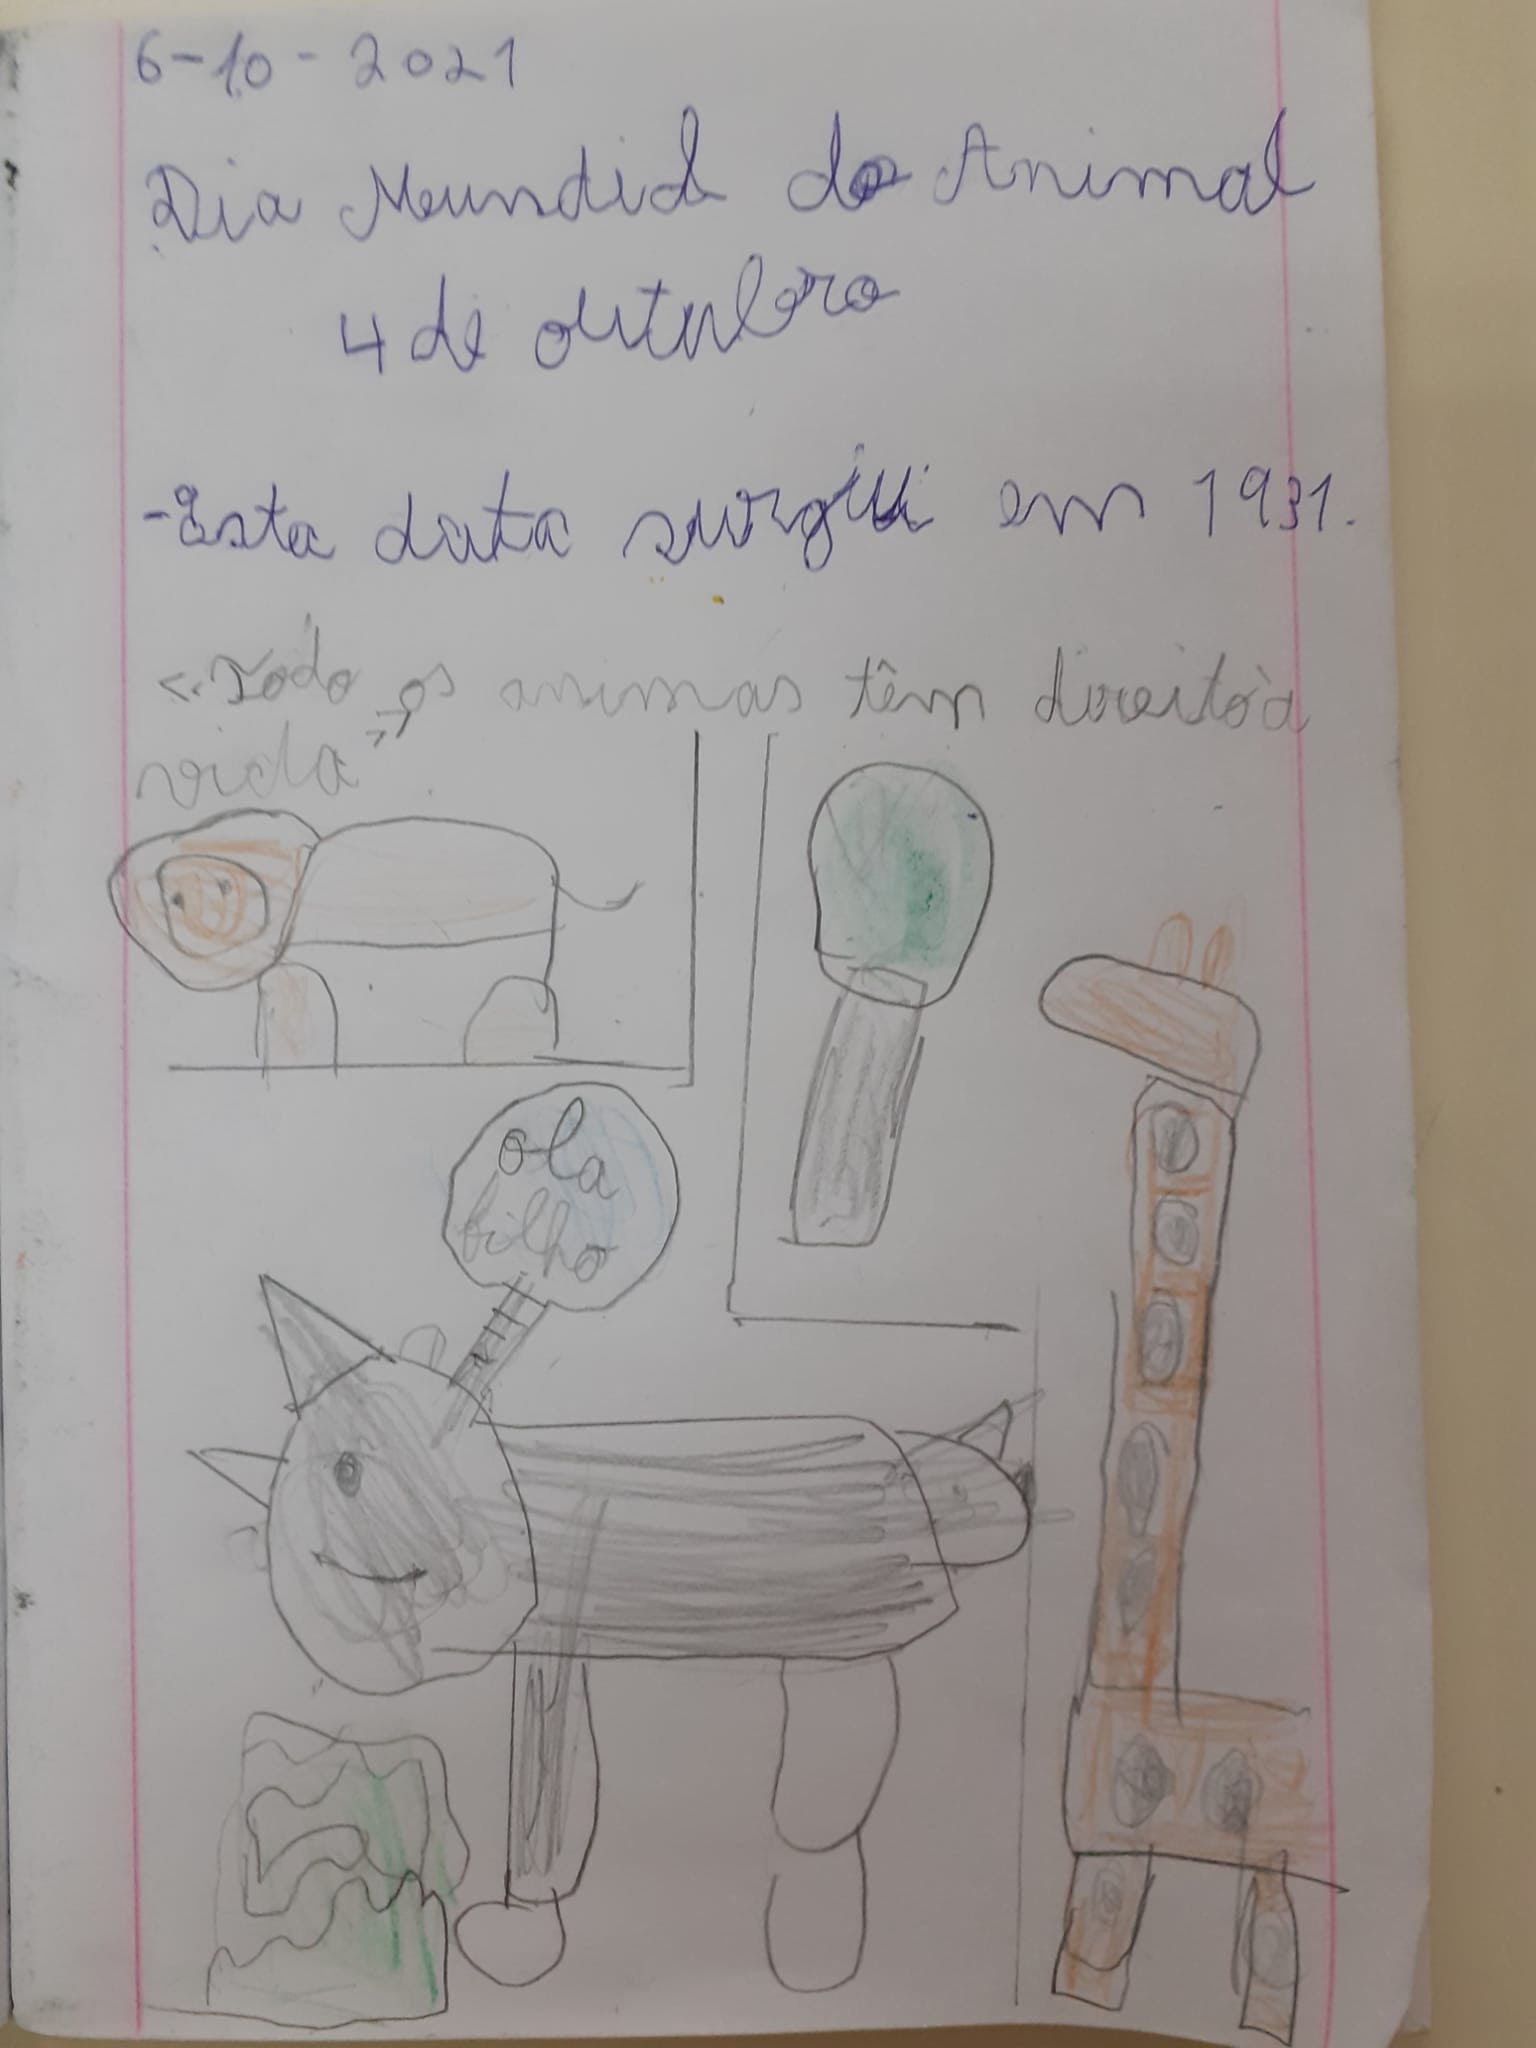 6-10-2021
Dia Mundial do Animal
4 de outubro
-Esta data surgiu em 1931.
<<Todo os animas têm direito à
vida>>
ola
filho